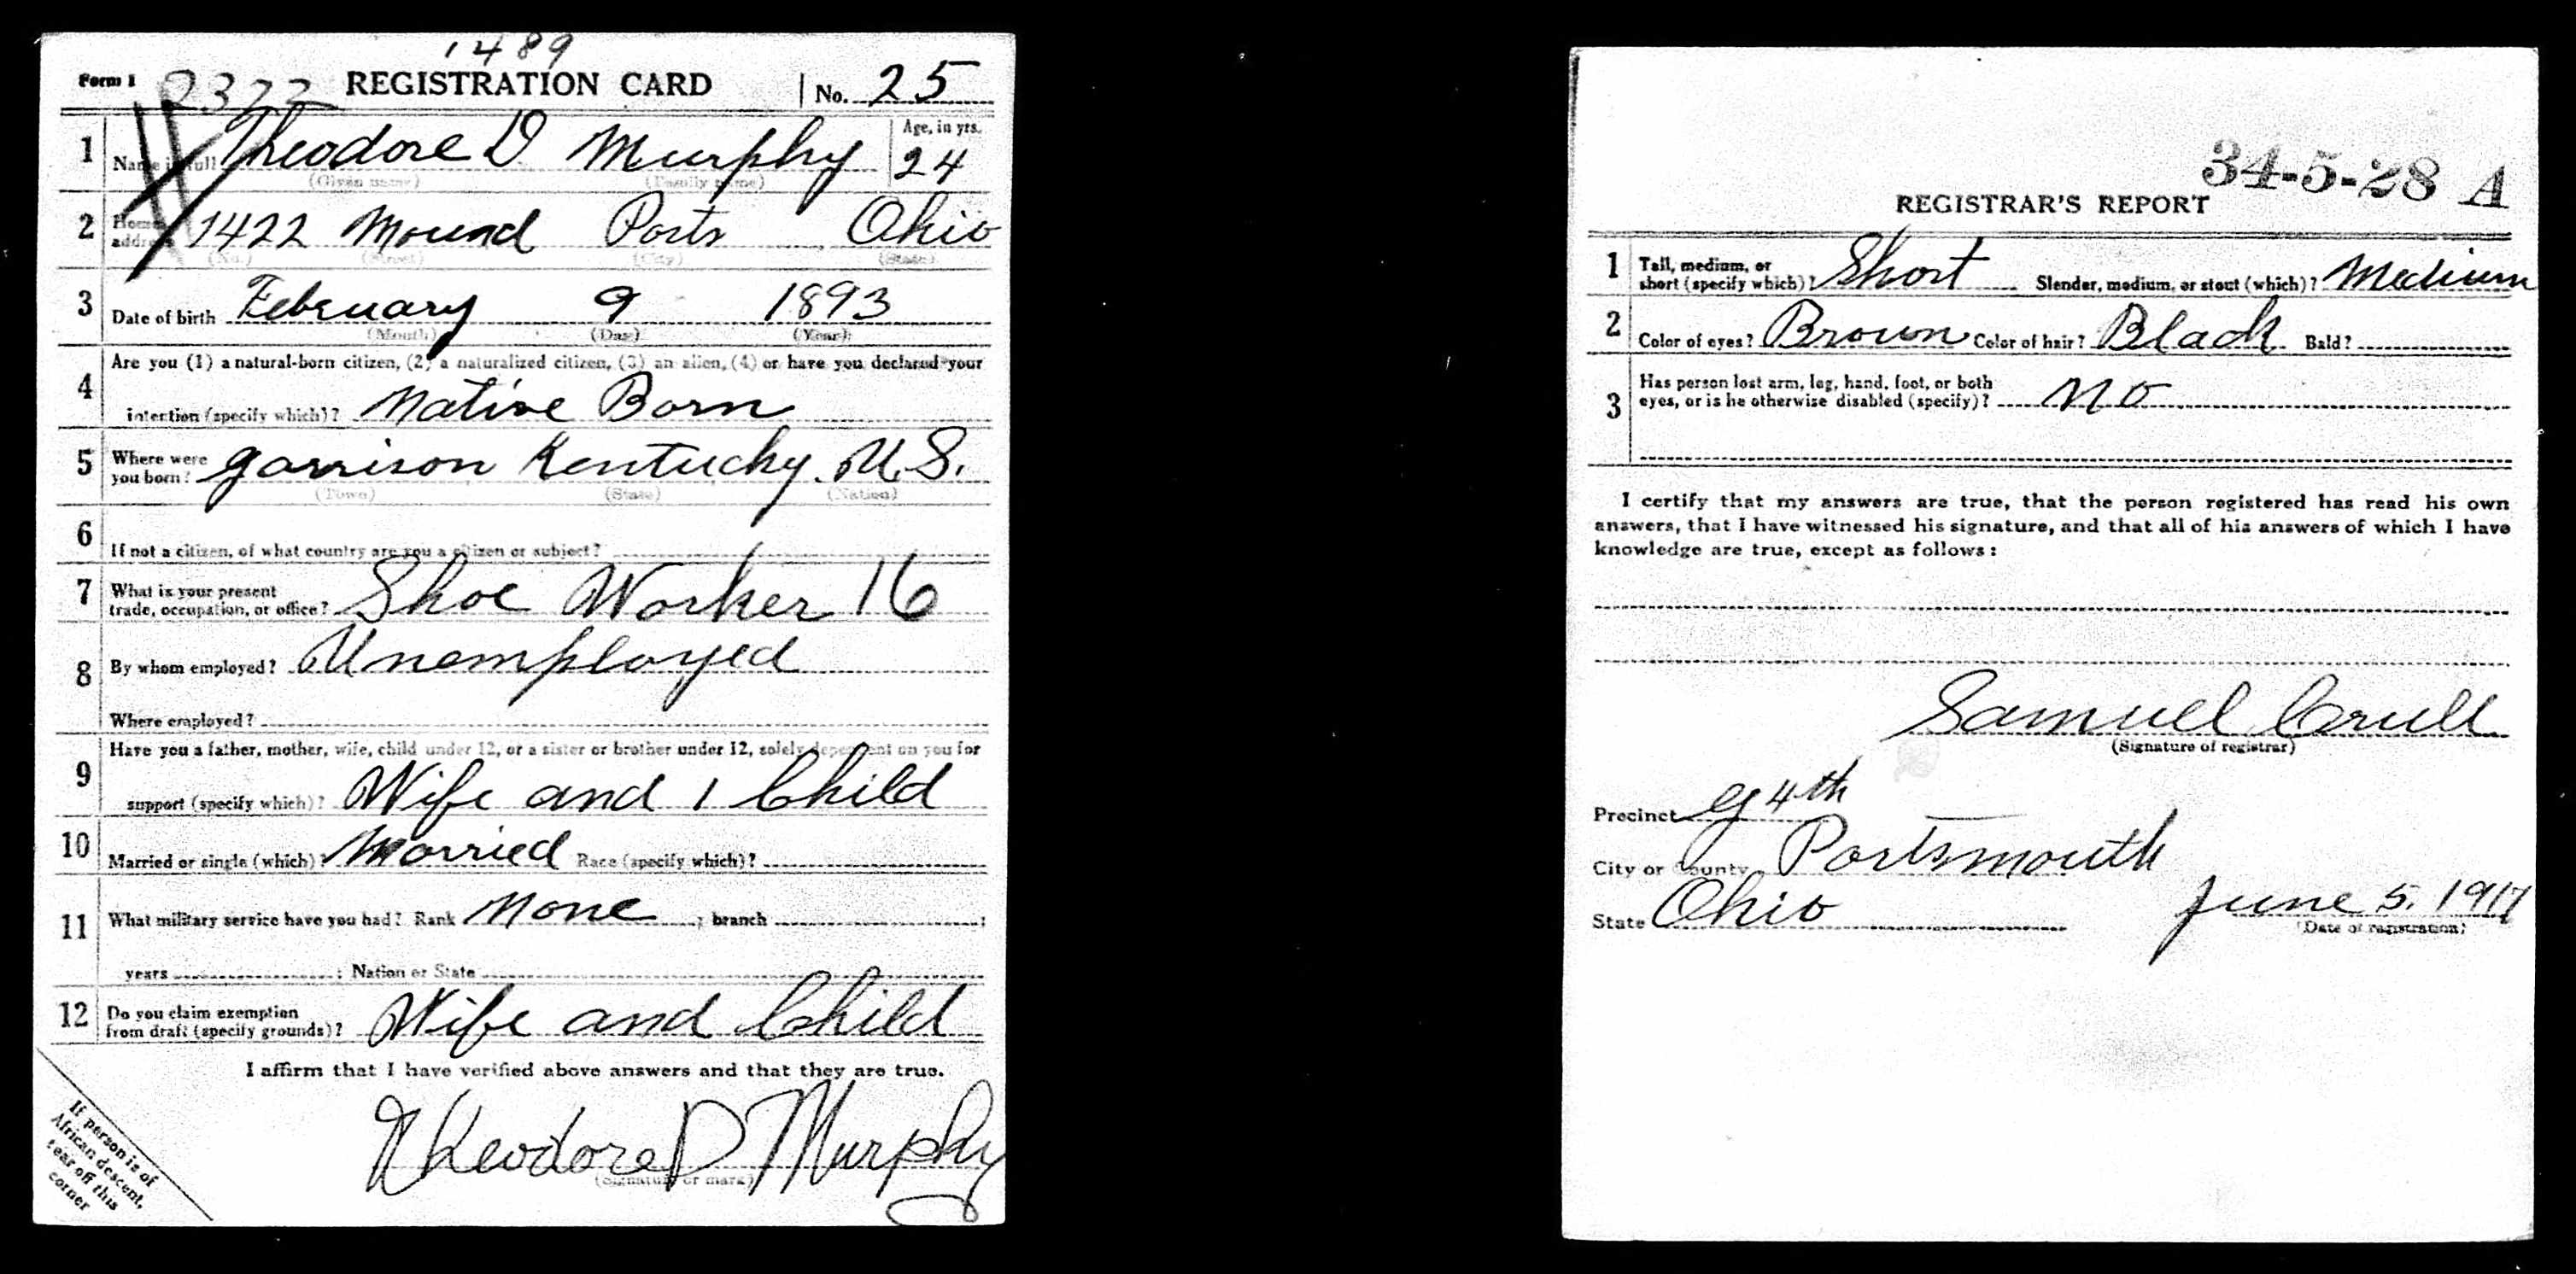 1489
Form 1 2372 REGISTRATION CARD No. 25
1 Name in full Theodore D Murphy Age, in yrs. 24
(Given name) (Family name)
2 Home address 1422 Mound Ports Ohio
(No.) (Street) (City) (State)
3 Date of birth February 9 1893
(Month) (Day) (Year)
4 Are you (1) a natural-born citizen, (2) a naturalized citizen, (3) an alien, (4) or have you declared your
intention (specify which)? Native Born
5 Where were you born? Garrison Kentucky. U.S.
(Town) (State) (Nation)
6 If not a citizen, of what country are you a citizen or subject?
7 What is your present trade, occupation, or office? Shoe Worker 16
8 By whom employed? Unemployed
Where employed?
9 Have you a father, mother, wife, child under 12, or a sister or brother under 12, solely dependent on you for
support (specify which)? Wife and 1 Child
10 Married or single (which)? Married Race (specify which)?
11 What military service have you had? Rank None ; branch ;
years ; Nation or State
12 Do you claim exemption from draft (specify grounds)? Wife and Child
I affirm that I have verified above answers and that they are true.
Theodore D Murphy
(Signature or mark)
If person is of
African descent,
tear off this
corner
34-5-28 A
REGISTRAR'S REPORT
1 Tall, medium, or short (specify which)? Short Slender, medium, or stout (which)? Medium
2 Color of eyes? Brown Color of hair? Black Bald?
3 Has person lost arm, leg, hand, foot, or both
eyes, or is he otherwise disabled (specify)? No
I certify that my answers are true, that the person registered has read his own
answers, that I have witnessed his signature, and that all of his answers of which I have
knowledge are true, except as follows:
Samuel Crull
(Signature of registrar)
Precinct G 4th
City or County Portsmouth
State Ohio June 5. 1917
(Date of registration)